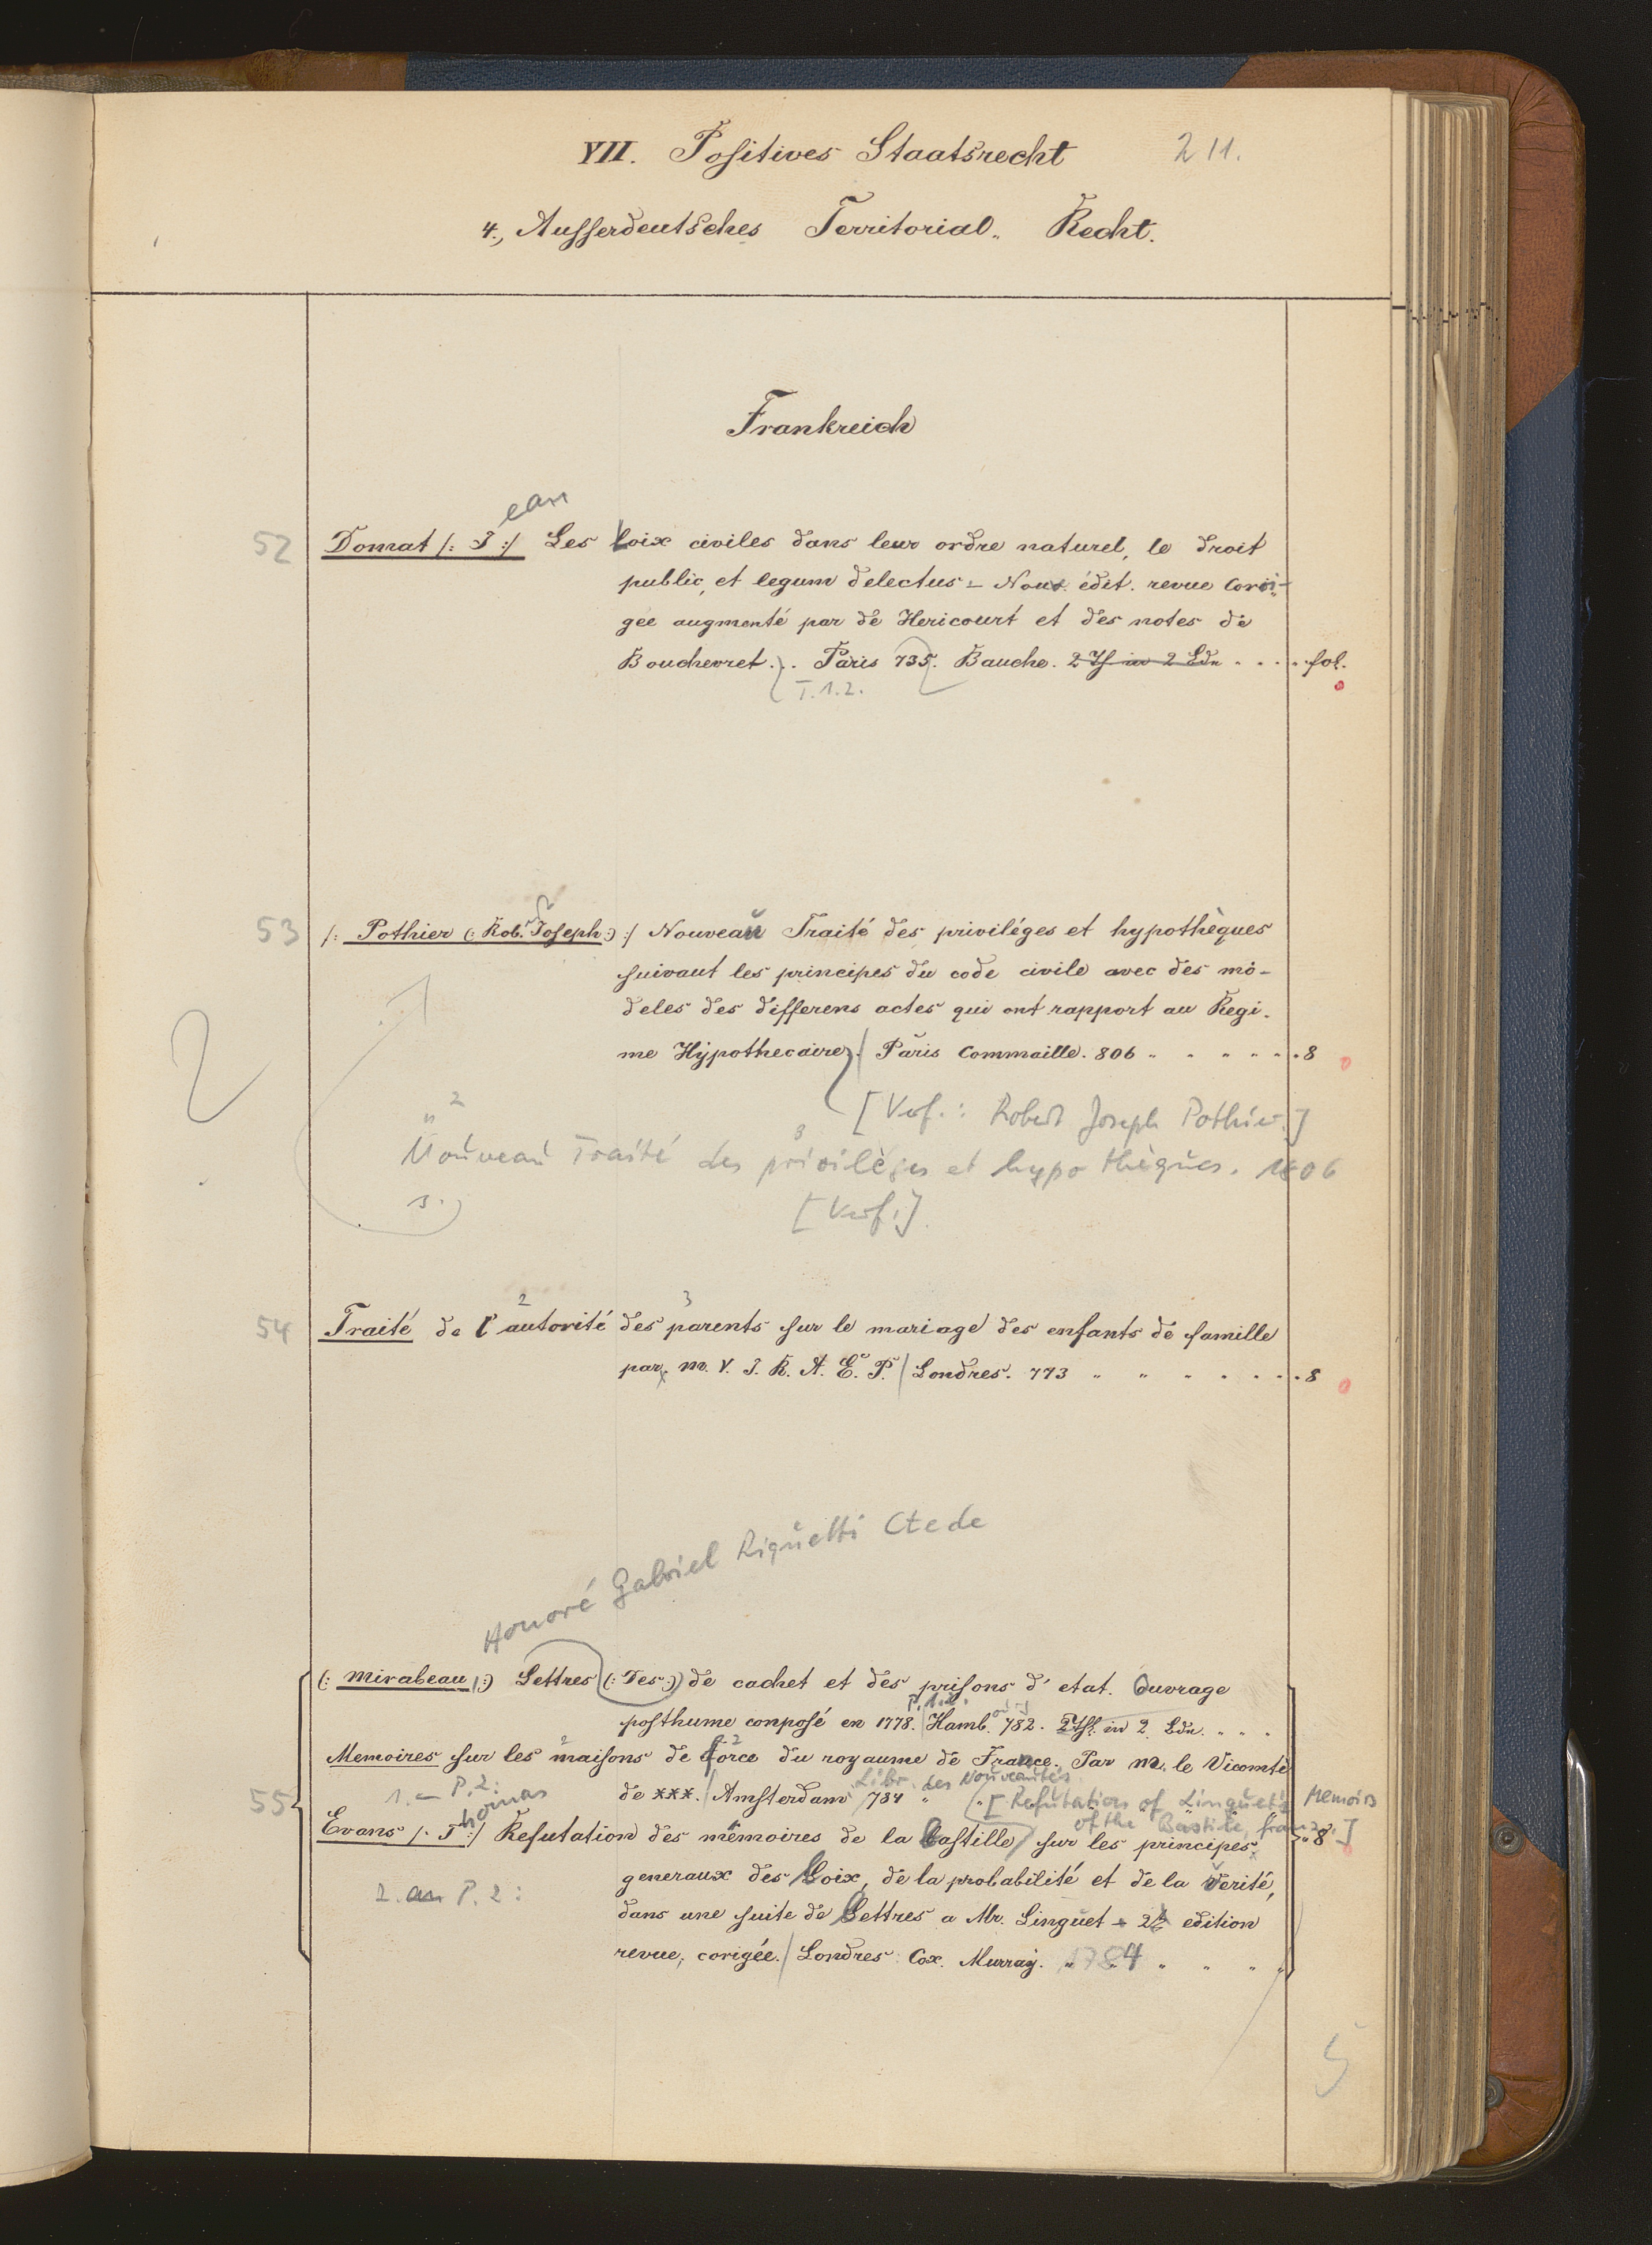 VII. Positives Staatsrecht 211.
4., Ausserdeutsches Territorial- Recht.
Frankreich
ean
52 Domat /: J :/ Les Loix civiles dans leur ordre naturel, le droit
public, et legum delectus = Nouv. édit. revue corri-
gée augmenté par de Hericourt et des notes de
Bouchevret. . Paris 735. Bauche. 2 Th in 2 Bdn . . . . fol.
T. 1. 2.
53 /: Pothier (: Rob. Joseph :) :/ Nouveau Traité des priviléges et hypothèques
suivant les principes du code civile avec des mo-
deles des differens actes qui ont rapport au Regi-
me Hypothecaire. / Paris Commaille. 806 . . . . . . 8
2 [Verf.: Robert Joseph Pothier.]
Nouveau Traité des privilèges et hypothèques. 1806
3.) [Verf:].
2 3
54 Traité de l'autorité des parents sur le mariage des enfants de famille
par M. V. J. R. A. E. P. / Londres. 773 . . . . . . . 8
Honoré Gabriel Riquetti Cte de
(: Mirabeau :) Lettres (: Des :) de cachet et des prisons d'etat. Ouvrage
P. 1. 2.
posthume conposé en 1778. / Hamb. 782. 2 Th. in 2 Bdn. . . .
Memoires sur les maisons de force du royaume de France. Par M. le Vicomte
1. P. 2: Libr. des Nouveautés
55 de ***. / Amsterdam 784 [Refutation of Linguet's Memoirs
homas of the Bastile, franz.]
Evans /: T :/ Refutation des mémoires de la bastille / sur les principes 8
generaux des Loix, de la probabilité et de la verité,
2. an P. 2:
dans une suite de Lettres a Mr. Linguet = 2 edition
revue, corigée. / Londres Cox. Murray. 1784 . . . .
5